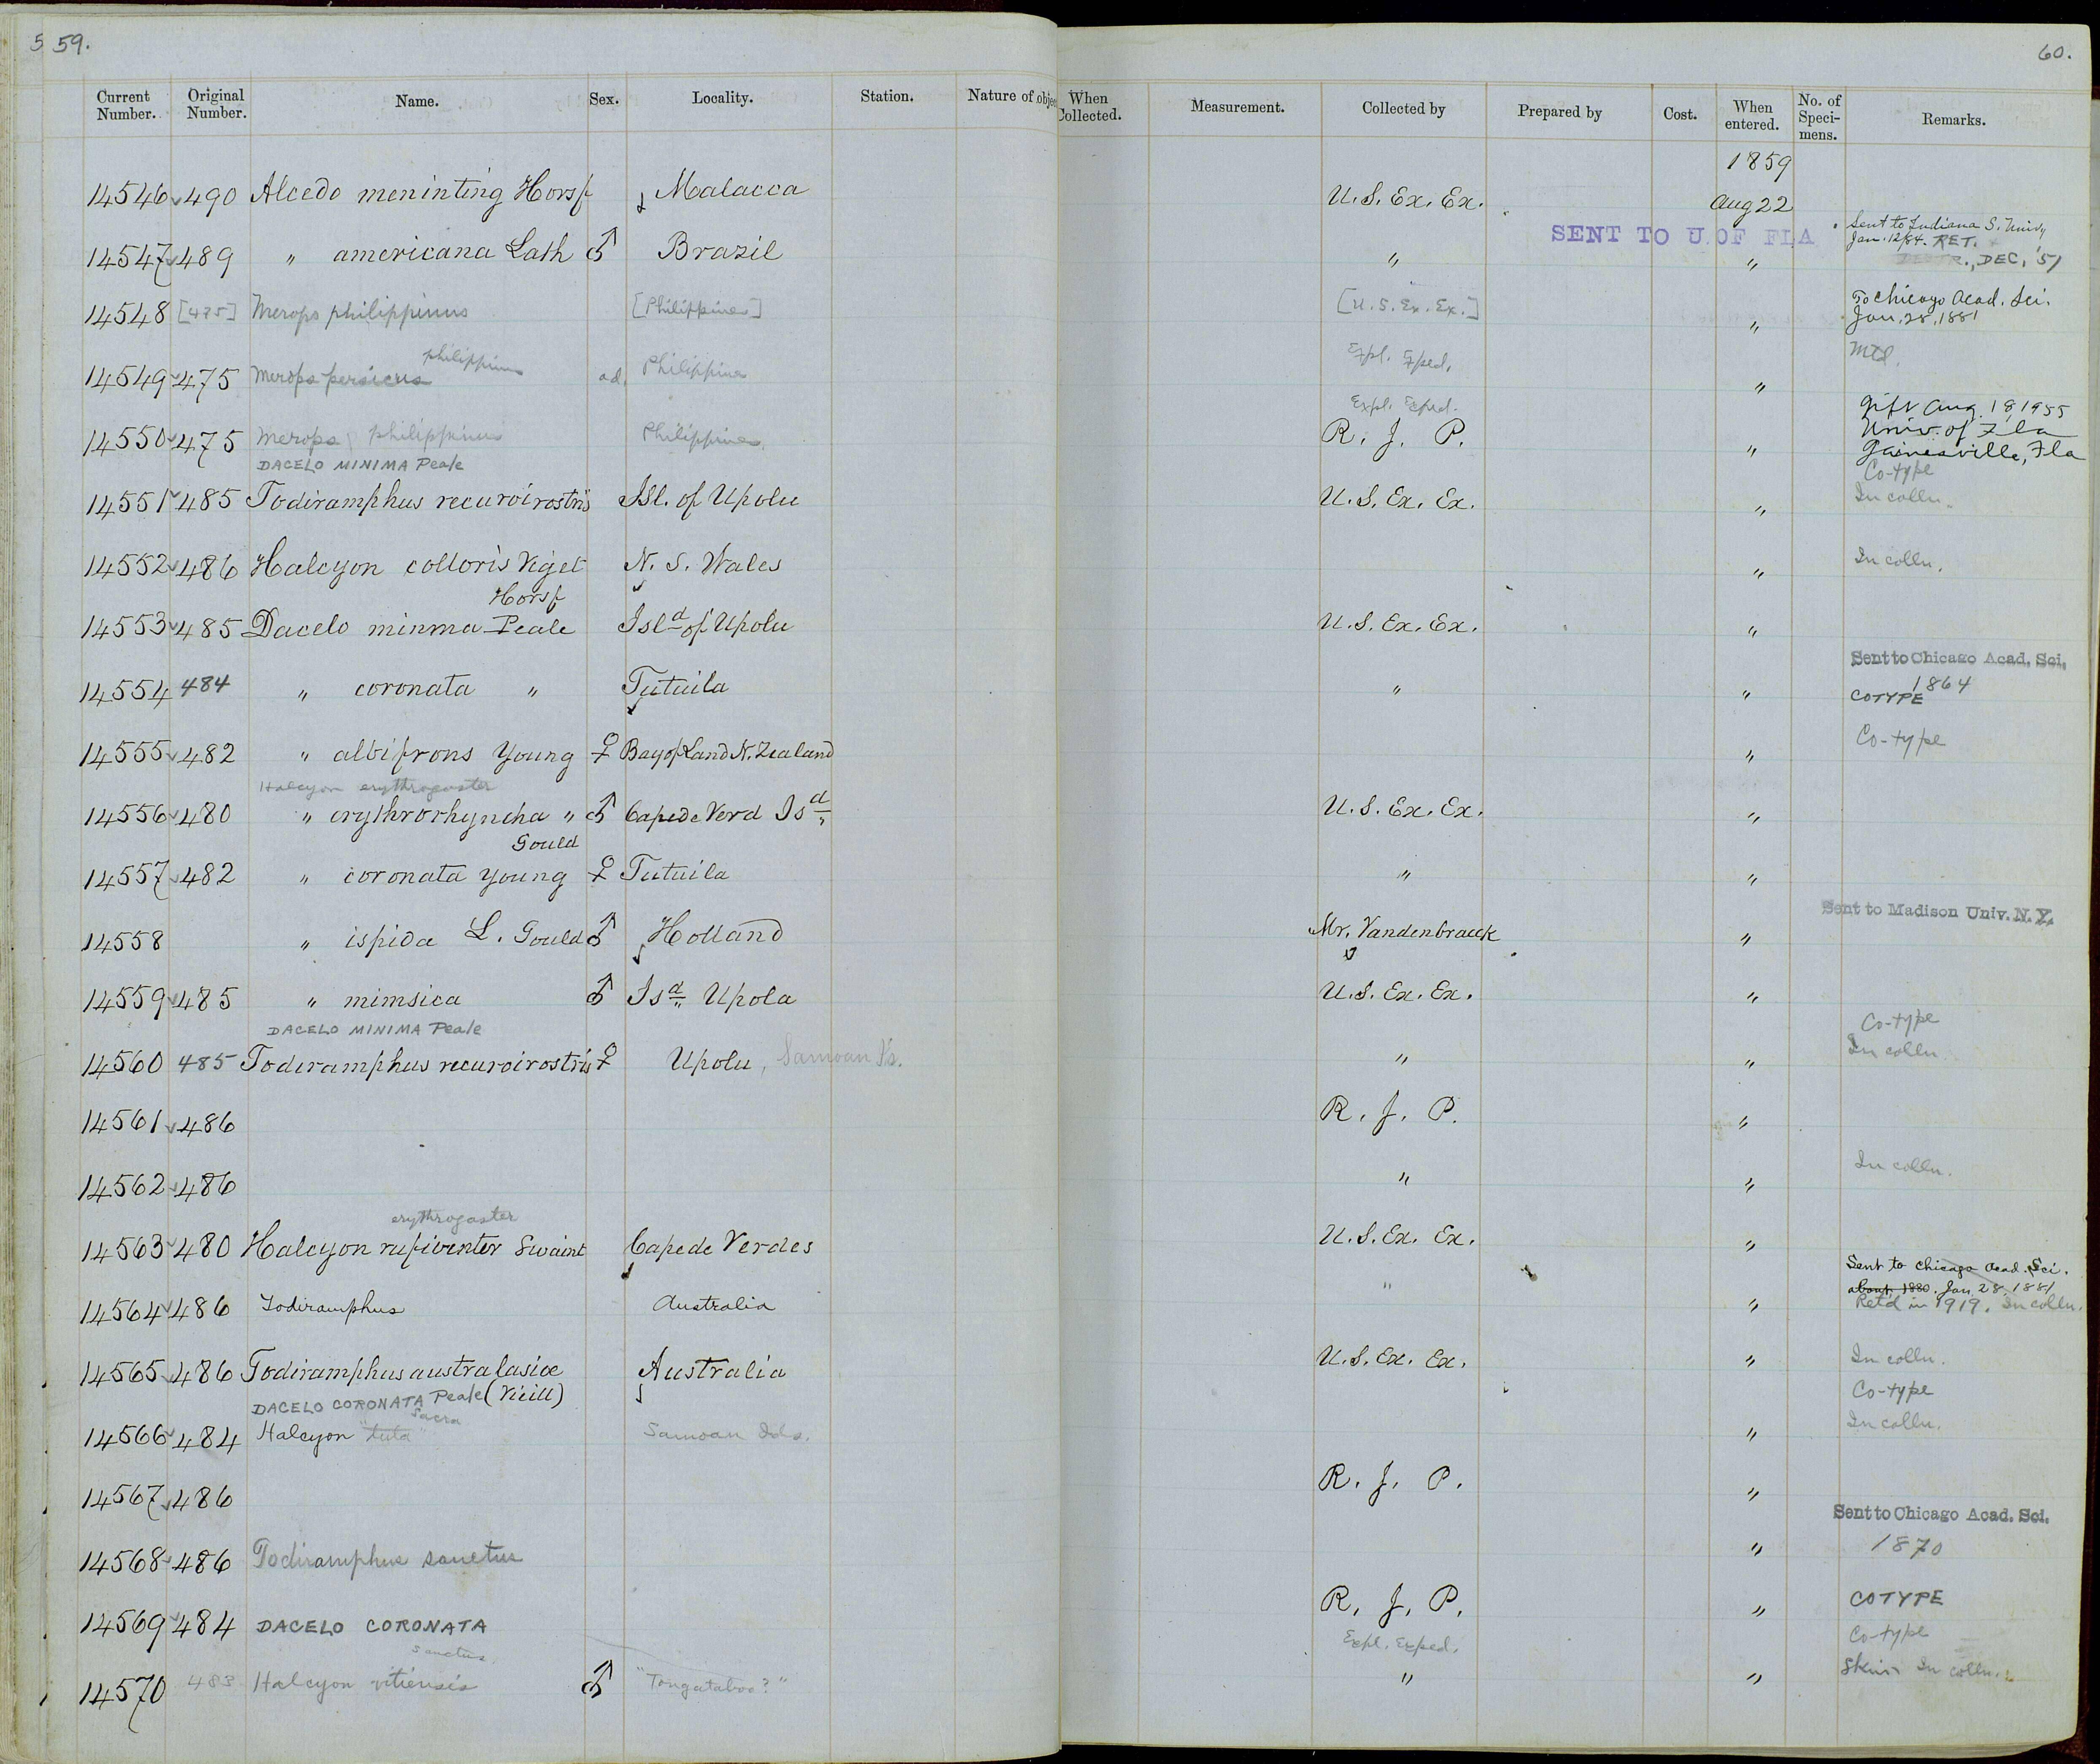 5 59.
60.
Current Number. Original Number. Name. Sex. Locality. Station. Nature of objec When Collected. Measurement. Collected by Prepared by Cost. When entered. No. of Speci-mens. Remarks.
1859
14546 490 Alcedo meninting Horsf Malacca U.S. Ex. Ex. Aug 22
SENT TO U OF FLA
Sent to Indiana S. Univy
Jan. 12/84. RET.
14547 489 " americana Lath ♂ Brazil " " DEC, '51
14548 [475] Merops philippinus [Philippines] [U.S. Ex. Ex.] " To Chicago Acad. Sci.
Jan. 28, 1881
philippinus Expl. Exped. Mtd.
14549 475 Merops persicus ad. Philippine "
Expl. Exped. Gift Aug. 18 1955
14550 475 Merops philippinus Philippines. R. J. P. " Univ. of Fla
Gainesville, Fla
DACELO MINIMA Peale Co-type
14551 485 Todiramphus recuroirostris Isl. of Upolu U.S. Ex. Ex. " In colln.
14552 486 Halcyon colloris Viget N. S. Wales " In colln.
Horsf
14553 485 Dacelo minma Peale Isld of Upolu U.S. Ex. Ex. "
Sent to Chicago Acad. Sci.
1864
14554 484 " coronata " Tutuila " " COTYPE
14555 482 " albifrons Young ♀ Bay of Land N. Zealand " Co-type
Halcyon erythrogaster
14556 480 " erythrorhyncha " ♂ Cape de Verd Isd U.S. Ex. Ex. "
Gould
14557 482 " coronata young ♀ Tutuila " "
Sent to Madison Univ. N.Y.
14558 " ispida L. Gould ♂ Holland Mr. Vandenbraeck "
14559 485 " mimsica ♂ Isd Upola U.S. Ex. Ex. "
DACELO MINIMA Peale Co-type
14560 485 Todiramphus recuroirostris ♀ Upolu, Samoan Is. " " In colln.
14561 486 R. J. P. "
14562 486 " " In colln.
erythrogaster
14563 480 Halcyon rufiventer Swaint Cape de Verdes U.S. Ex. Ex. "
Sent to Chicago Acad. Sci.
about 1880. Jan 28, 1881
14564 486 Todiramphus Australia " " Ret'd in 1919. In colln.
14565 486 Todiramphus australasiæ Australia U.S. Ex. Ex. " In colln.
(Vieill)
DACELO CORONATA Peale Co-type
sacra
14566 484 Halcyon "tuta" Samoan Ids. " In colln.
14567 486 R. J. P. "
Sent to Chicago Acad. Sci.
14568 486 Todiramphus sanctus " 1870
14569 484 DACELO CORONATA R. J. P. " COTYPE
sanctus. Expl. Exped. Co-type
14570 483 Halcyon vitiensis ♂ "Tongataboo?" " " Skin in colln.